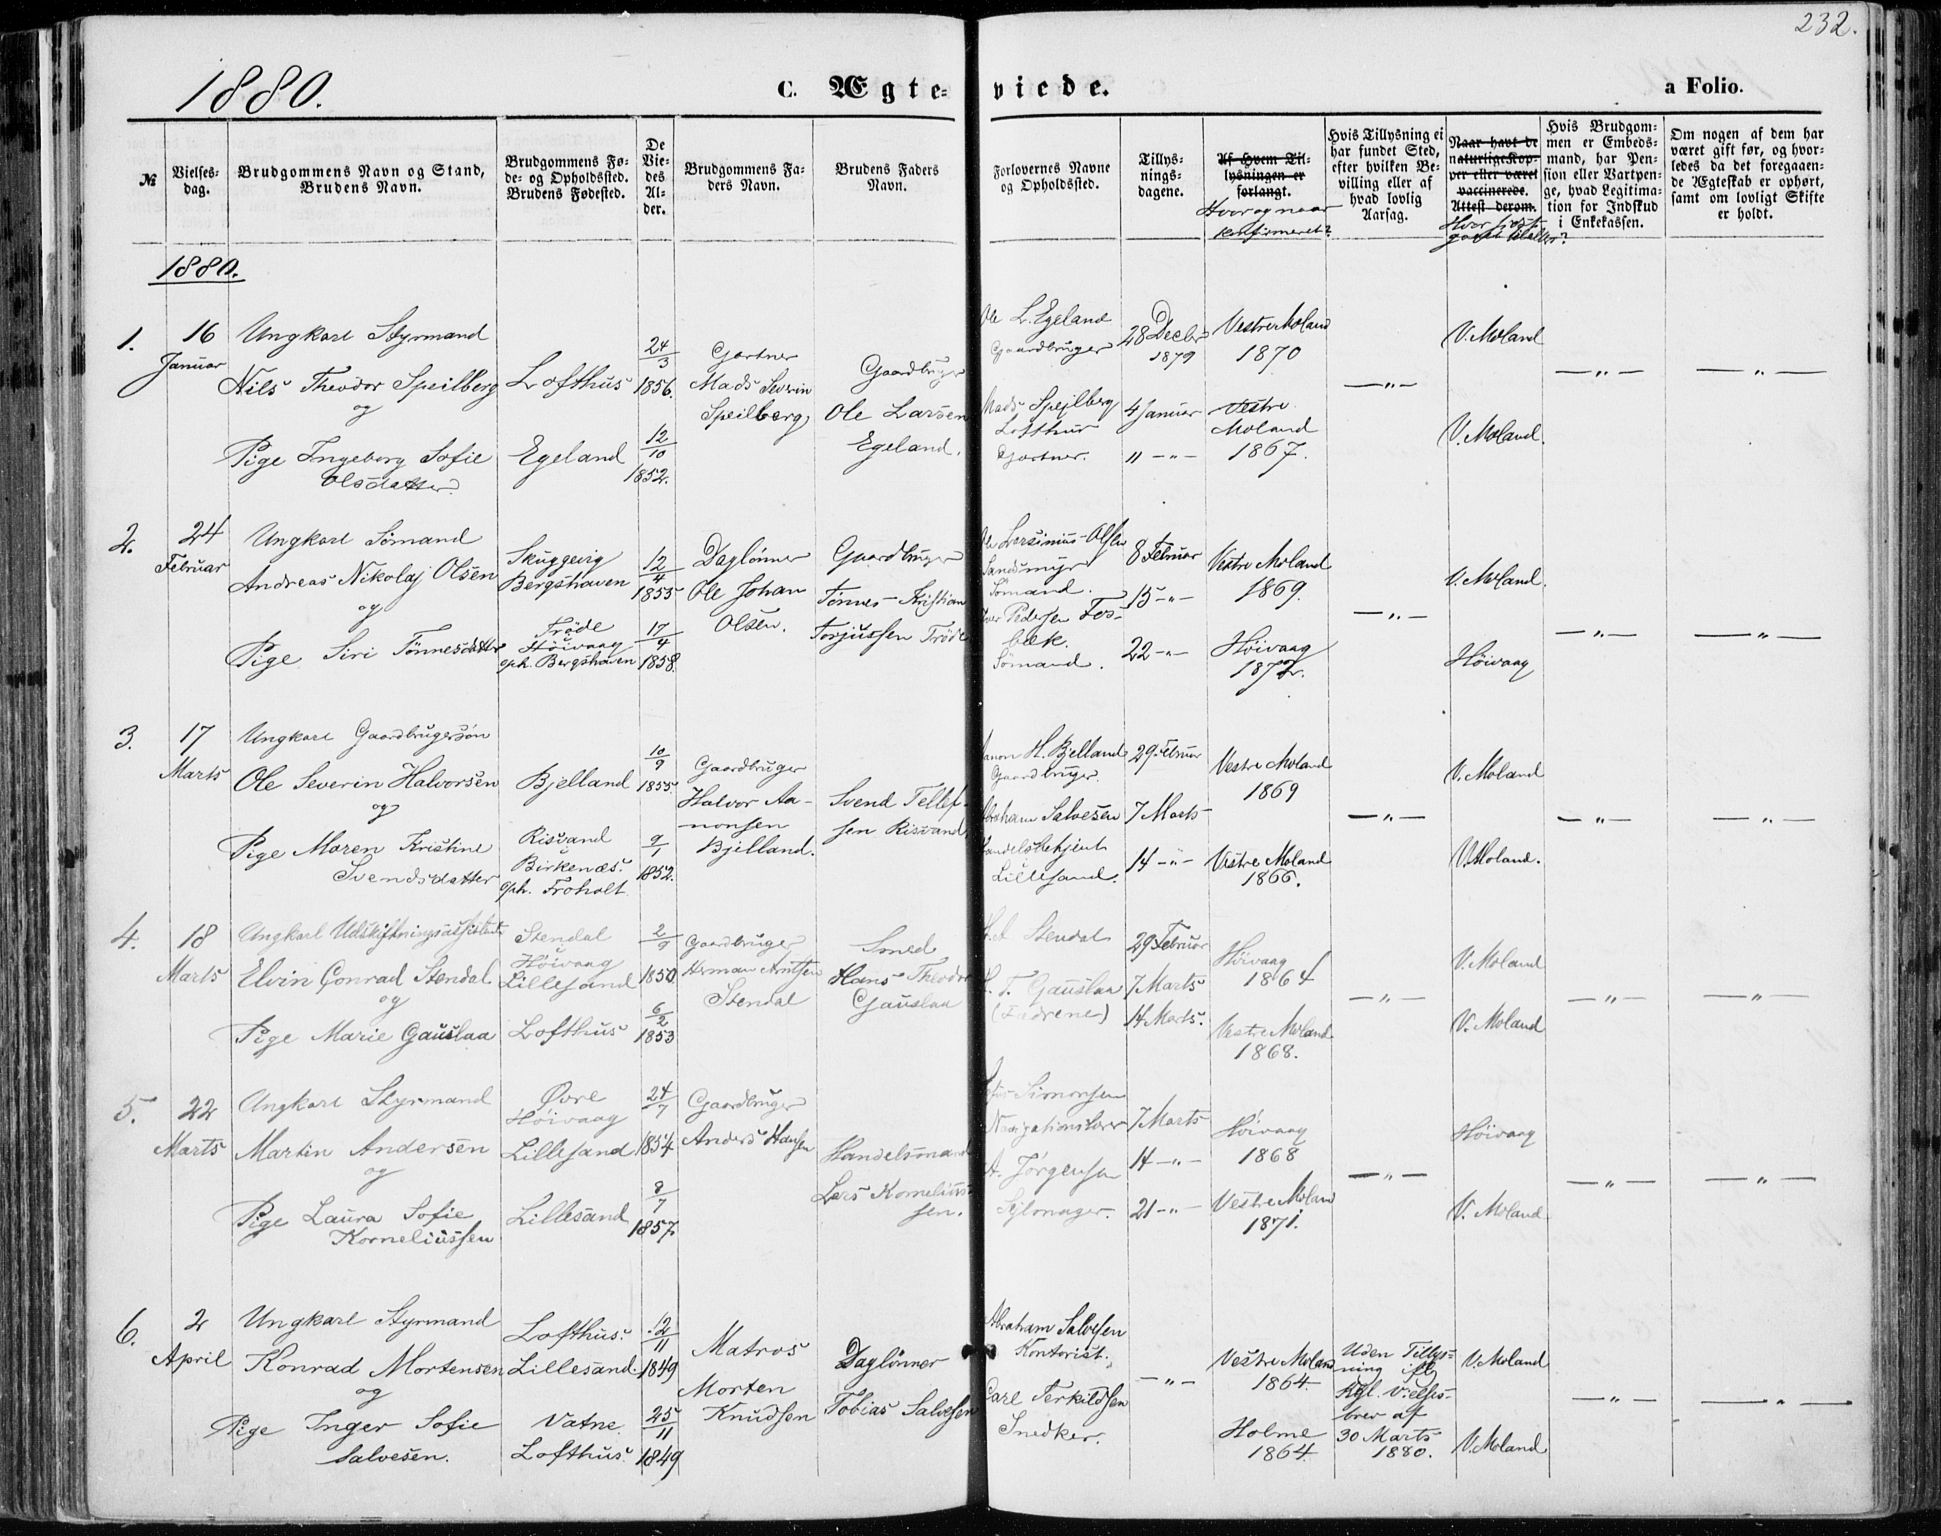 232.
1880.
C. Ægte-
viede.
a Folio.
№
Vielses-
dag.
Brudgommens Navn og Stand,
Brudens Navn.
Brudgommens Fø-
de- og Opholdssted.
Brudens Fødested.
De
Vie-
des
Al-
der.
Brudgommens Fa-
ders Navn.
Brudens Faders
Navn.
Forlovernes Navne
og Opholdssted.
Tillys-
nings-
dagene.
Af Hvem Til-
lysningen er
forlangt.
Hvor og naar
konfirmeret?
Hvis Tillysning ei
har fundet Sted,
efter hvilken Be-
villing eller af
hvad lovlig
Aarsag.
Naar havt de
naturlige Kop-
per eller været
vaccinerede.
Attest derom.
Hvis Brudgom-
men er Embeds-
mand, har Pen-
sion eller Vartpen-
ge, hvad Legitima-
tion for Indskud
i Enkekassen.
Om nogen af dem har
været gift før, og hvor-
ledes da det foregaaen-
de Ægteskab er ophørt,
samt om lovligt Skifte
er holdt.
1880.
1.
16
Januar
Ungkarl Styrmand
Nils Theodor Speilberg
og
Pige Ingeborg Sofie
Olsdatter
Lofthus
Egeland
24/3
1856.
12/10
1852.
Gartner
Mads Severin
Speilberg
Gaardbruger
Ole Larsen
Egeland.
Ole L. Egeland
Gaardbruger
Mads Spejlberg
Lofthus
Gartner.
28 Decbr
1879
4 Januar
11 -"-
Vestre Moland
1870
Vestre
Moland
1867.
-"-
V. Moland
V. Moland.
-"-
-"-
2.
24
Februar
Ungkarl Sømand
Andreas Nikolaj Olsen
og
Pige Siri Tønnesdatter
Skuggevig
Bergshaven
Trøde
Höivaag
oph. Bergshaven
12/4
1855
17/4
1858.
Daglønner
Ole Johan
Olsen.
Gaardbruger
Tønnes Kristian
Torjussen Trøde
Sandsmyr
Sömand.
Pedersen Fos-
bæk.
Sømand.
8 Februar
15 -"-
22 -"-
Vestre Moland
1869.
Höivaag
1872.
-"-
V. Moland.
Höivaag
-"-
-"-
3.
17
Marts
Ungkarl Gaardbrugersøn
Ole Severin Halvorsen
og
Pige Maren Kristine
Svendsdatter
Bjelland
Risvand
Birkenæs.
oph. Froholt
10/9
1855
9/1
1852.
Gaardbruger
Halvor Aa-
nonsen
Bjelland.
Svend Tellef-
sen Risvand
H. Bjelland
Gaardbruger.
Abraham Salvesen
Handelsbetjent
Lillesand.
29 Februar
7 Marts
14 -"-
Vestre Moland
1869
Vestre Moland
1866.
-"-
V. Moland
V. Moland.
-"-
-"-
4.
18
Marts
Ungkarl Udskiftningsassistent
Elvin Conrad Stendal
og
Pige Marie Gauslaa
Stendal
Höivaag
Lillesand
Lofthus
2/9
1850.
6/2
1853
Gaardbruger
Herman Arntsen
Stendal
Smed
Hans Theodor
Gauslaa
Stendal
H. T. Gauslaa
(Fædrene)
29 Februar
7 Marts
14 Marts.
Höivaag
1864
Vestre Moland
1868.
-"-
V. Moland
V. Moland
-"-
-"-
5.
22
Marts
Ungkarl Styrmand
Martin Andersen
og
Pige Laura Sofie
Korneliussen
Øvre
Höivaag
Lillesand
Lillesand
24/7
1854
8/7
1857.
Gaardbruger
Anders Hansen
Handelsmand
Lars Kornelius-
sen.
Simonsen
Navigationslærer
A. Jørgensen
Sejlmager.
7 Marts
14 -"-
21 -"-
Höivaag
1868
Vestre Moland
1871.
-"-
Höivaag
V. Moland.
-"-
-"-
6.
2
April
Ungkarl Styrmand
Konrad Mortensen
og
Pige Inger Sofie
Salvesen.
Lofthus.
Lillesand.
Vatne
Lofthus.
12/11
1849
25/11
1849
Matros
Morten
Knudsen
Daglønner
Tobias Salvesen
Abraham Salvesen
Kontorist.
Carl Terkildsen
Snedker.
-"-
Vestre Moland
1864.
Holme
1864.
Uden Tillys-
ning ifl
Kgl. Vielses-
brev af
30 Marts
1880.
V. Moland
V. Moland
-"-
-"-